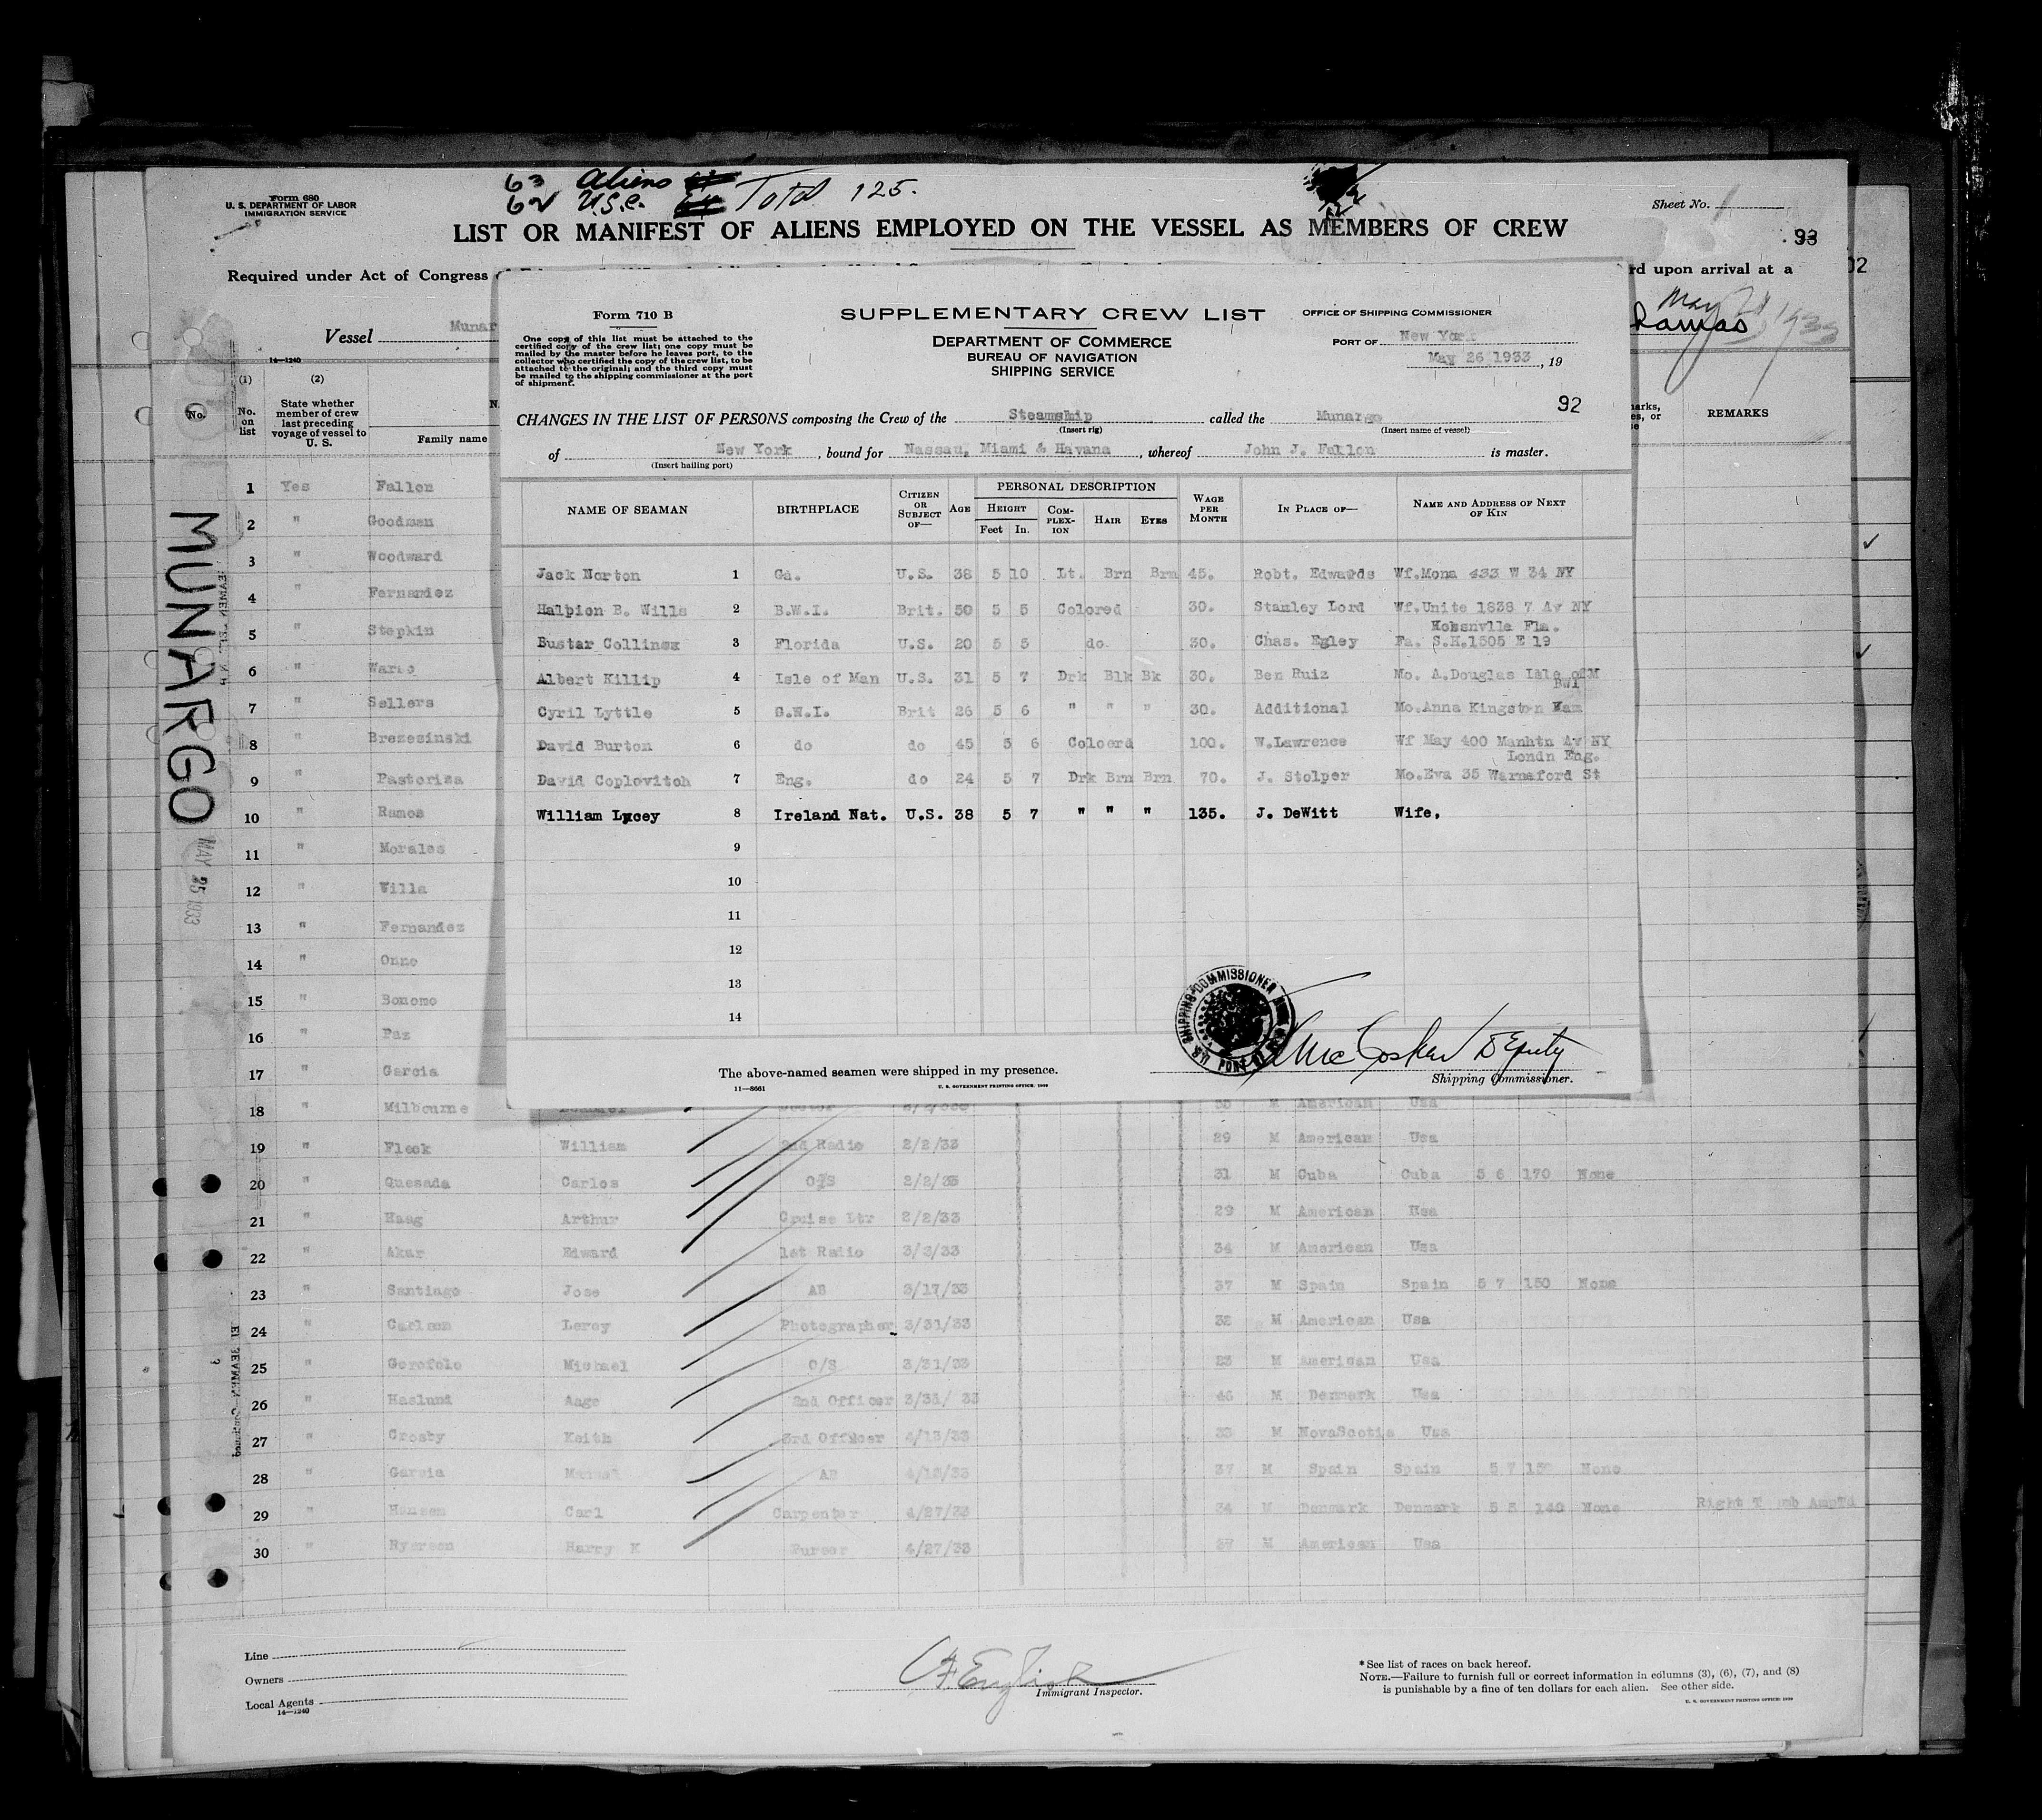 63 Aliens
62 U.S.C. Total 125.
Form 680
U. S. DEPARTMENT OF LABOR
IMMIGRATION SERVICE
Sheet No. 1
LIST OR MANIFEST OF ALIENS EMPLOYED ON THE VESSEL AS MEMBERS OF CREW
93
Required under Act of Congress
rd upon arrival at a
02
Vessel Munar
hamas May 1933
14—1240
(1) (2)
No. on list
State whether member of crew last preceding voyage of vessel to U. S.
Family name
REMARKS
MUNARGO
MAY 25 1933
Form 710 B
One copy of this list must be attached to the
certified copy of the crew list; one copy must be
mailed by the master before he leaves port, to the
collector who certified the copy of the crew list, to be
attached to the original; and the third copy must
be mailed to the shipping commissioner at the port
of shipment.
SUPPLEMENTARY CREW LIST
DEPARTMENT OF COMMERCE
BUREAU OF NAVIGATION
SHIPPING SERVICE
OFFICE OF SHIPPING COMMISSIONER
PORT OF New York
May 26 1933, 19
92
CHANGES IN THE LIST OF PERSONS composing the Crew of the Steamship called the Munargo
(Insert rig) (Insert name of vessel)
of New York, bound for Nassau, Miami & Havana, whereof John J. Fallon is master.
(Insert hailing port)
NAME OF SEAMAN BIRTHPLACE CITIZEN OR SUBJECT OF— AGE PERSONAL DESCRIPTION HEIGHT Feet In. COM-PLEX-ION HAIR EYES WAGE PER MONTH IN PLACE OF— NAME AND ADDRESS OF NEXT OF KIN
Jack Norton 1 Ga. U.S. 38 5 10 Lt. Brn Brn 45. Robt. Edwards Wf.Mona 433 W 34 NY
Halpion B. Wills 2 B.W.I. Brit. 50 5 5 Colored 30. Stanley Lord Wf.Unite 1838 7 Av NY
Bustar Collinsx 3 Florida U.S. 20 5 5 do. 30. Chas. Egley Fa. S.H.1505 E 19
Albert Killip 4 Isle of Man U.S. 31 5 7 Drk Blk Bk 30. Ben Ruiz Mo. A.Douglas Isle of M
BWI
Cyril Lyttle 5 B.W.I. Brit 26 5 6 " " " 30. Additional Mo.Anna Kingston
David Burton 6 do do 45 5 6 Colored 100. W.Lawrence Wf May 400 Manhtn Av NY
Londn Eng.
David Coplovitch 7 Eng. do 24 5 7 Drk Brn Brn 70. J. Stolper Mo.Eva 35 Warnsford St
William Lycey 8 Ireland Nat. U.S. 38 5 7 " " " 135. J. DeWitt Wife.
9
10
11
12
13
14
The above-named seamen were shipped in my presence.
11—8661
U. S. GOVERNMENT PRINTING OFFICE: 1929
Deputy
Shipping Commissioner.
1 Yes Fallon
2 " Goodman
3 " Woodward
4 " Fernandez
5 " Stepkin
6 "
7 " Sellers
8 " Brezesinski
9 " Pastoriza
10 " Ramos
11 " Morales
12 " Villa
13 " Fernandez
14 " Onno
15 " Bonomo
16 " Paz
17 " Garcia
18 " Milbourne American Usa
19 " Fleck William 2nd Radio 2/2/33 29 M American Usa
20 " Quesada Carlos O/S 2/2/33 31 M Cuba Cuba 5 6 170 None
21 " Haag Arthur Cruise Dtr 2/2/33 29 M American Usa
22 " Akar Edward 1st Radio 3/3/33 34 M American Usa
23 " Santiago Jose AB 3/17/33 37 M Spain Spain 5 7 150 None
24 " Carlson Leroy Photographer 3/31/33 32 M American Usa
25 " Gorofolo Michael O/S 3/31/33 23 M American Usa
26 " Haslund Aage 2nd Officer 3/31/33 46 M Denmark Usa
27 " Crosby Keith 3rd Officer 4/13/33 33 M NovaScotia Usa
28 " Garcia Manuel AB 4/13/33 37 M Spain Spain 5 7 150 None
29 " Hansen Carl Carpenter 4/27/33 34 M Denmark Denmark 5 5 140 None Right Thumb AmpTd
30 " Ryerson Harry K Purser 4/27/33 37 M American Usa
Line
Owners
Local Agents
14—1240
English
Immigrant Inspector.
* See list of races on back hereof.
NOTE.—Failure to furnish full or correct information in columns (3), (6), (7), and (8)
is punishable by a fine of ten dollars for each alien. See other side.
U. S. GOVERNMENT PRINTING OFFICE: 1929